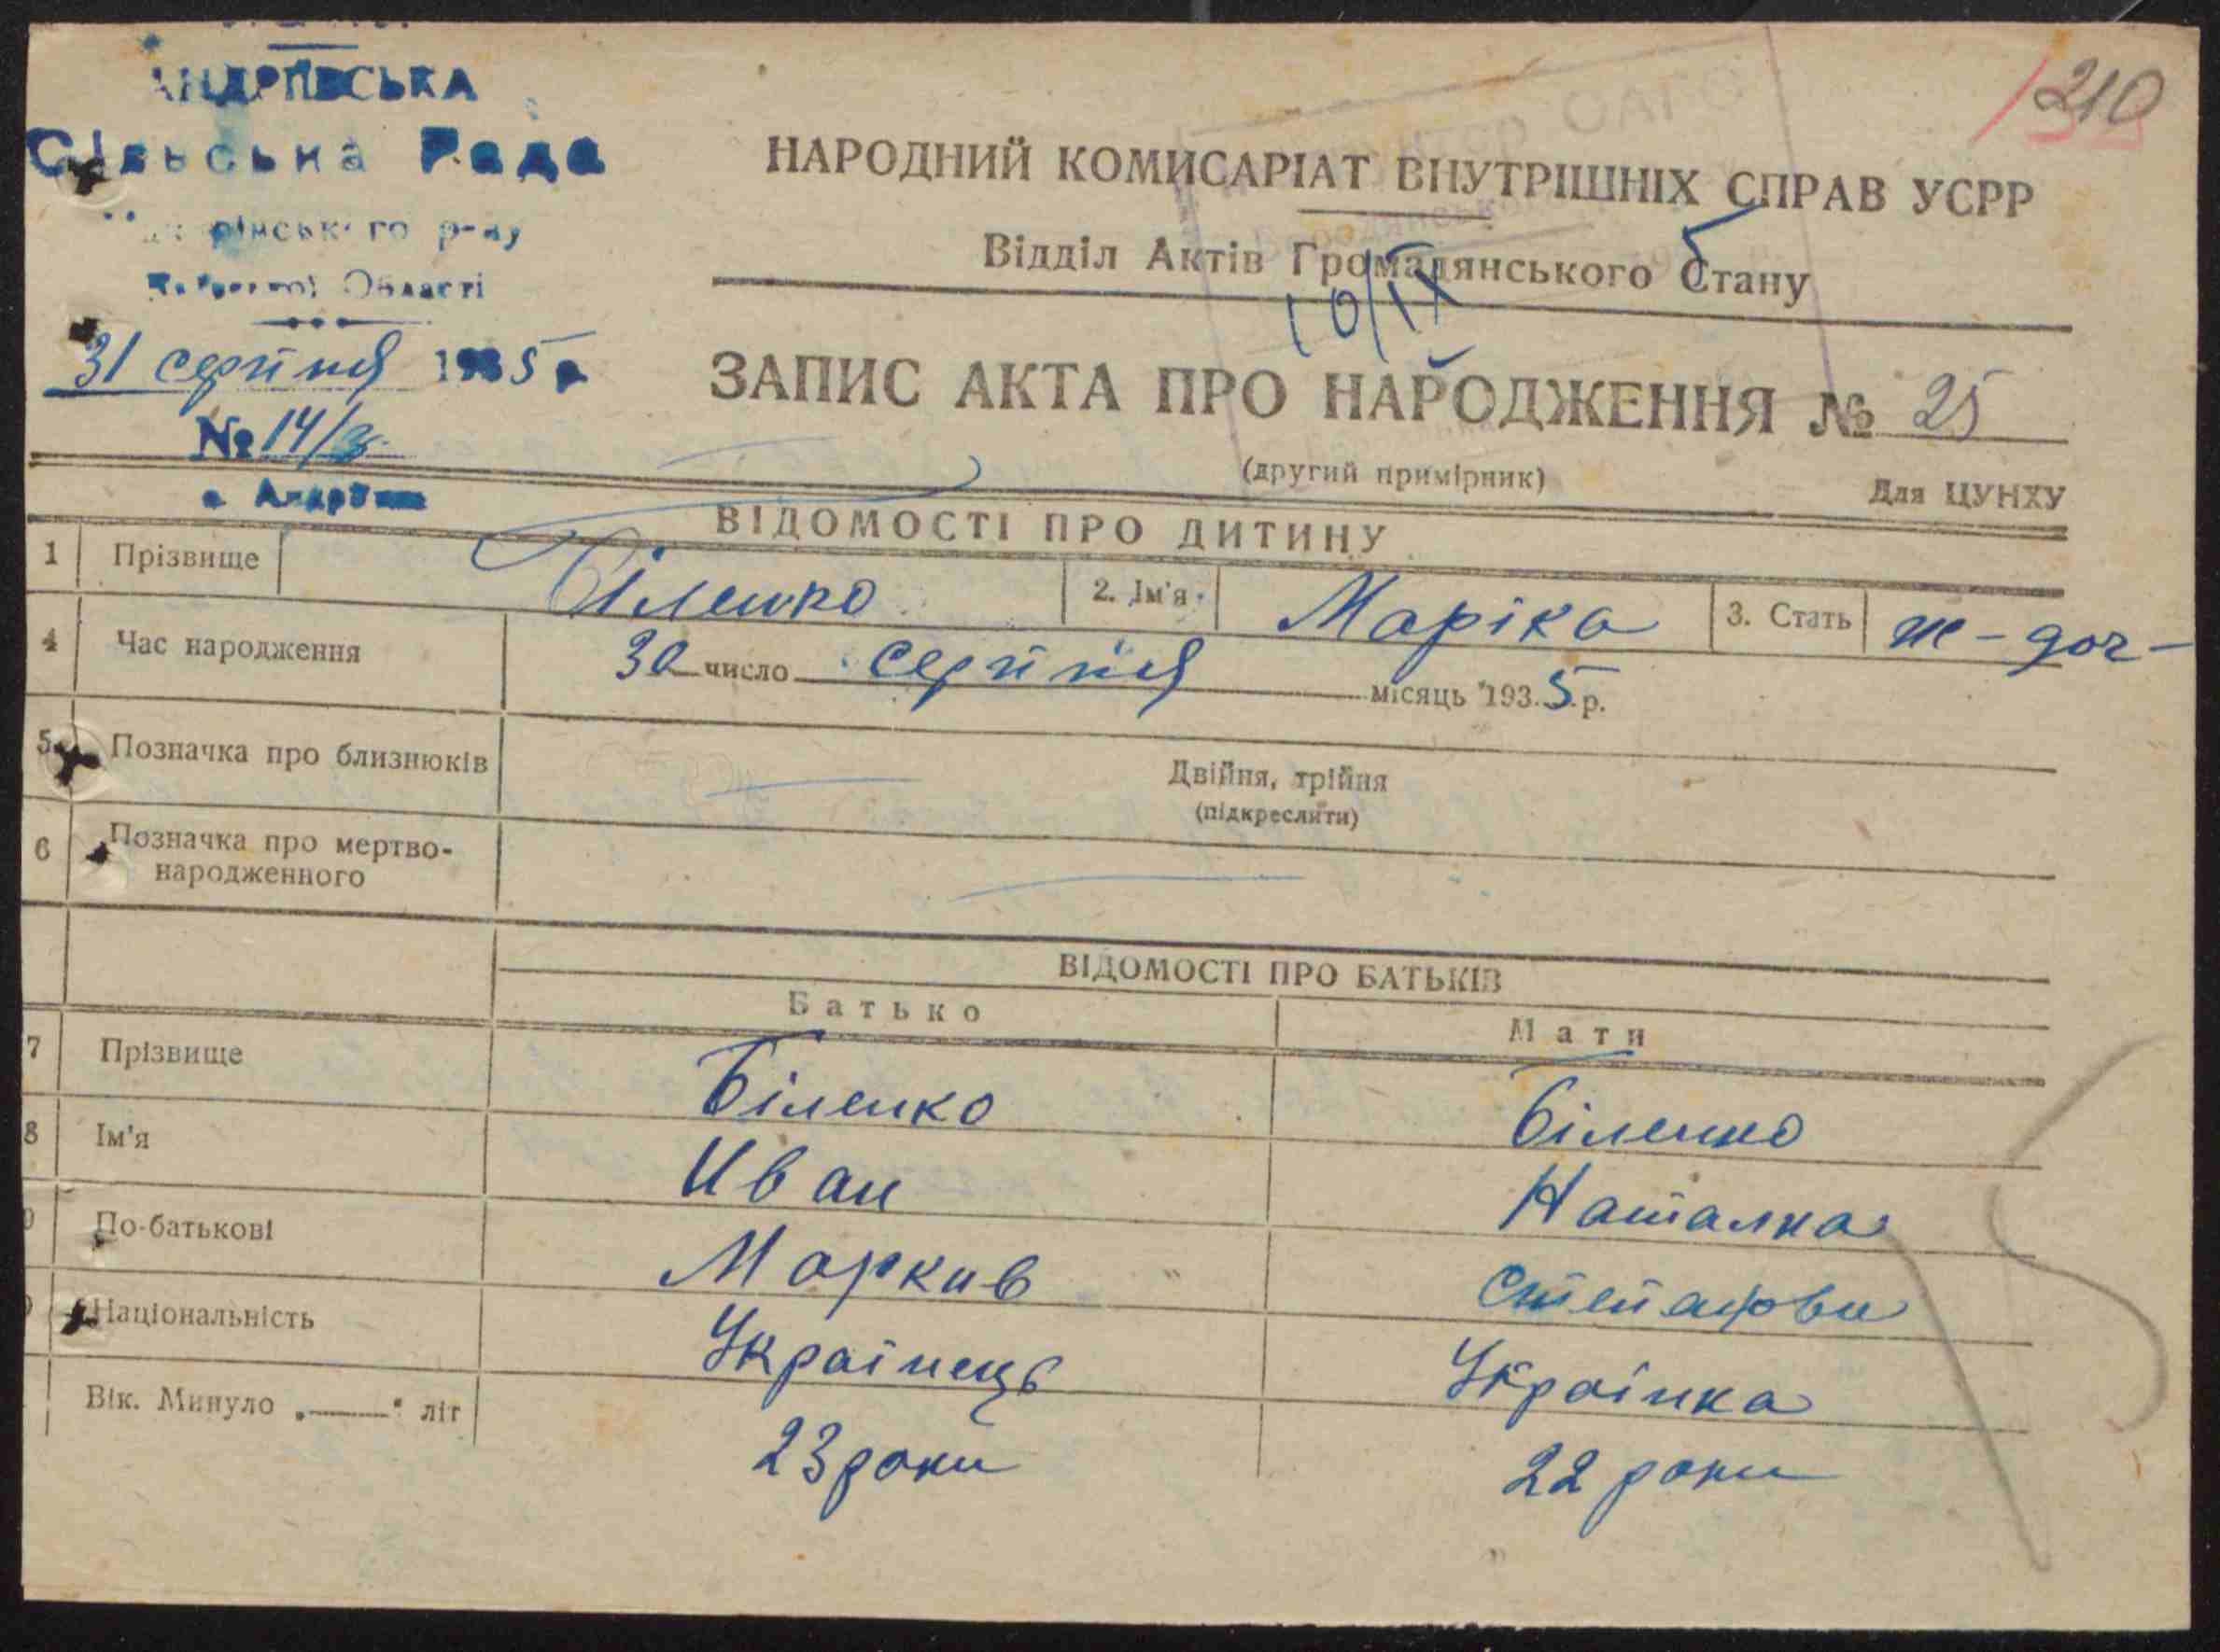 АНДРІЇВСЬКА
Сільська Рада
р-ну
Області
31 серпня 1935 р
№ 14/
с Андріївка
210
НАРОДНИЙ КОМИСАРІАТ ВНУТРІШНІХ СПРАВ УСРР
Відділ Актів Громадянського Стану
10/IX 5
ЗАПИС АКТА ПРО НАРОДЖЕННЯ № 25
(другий примірник)
Для ЦУНХУ
ВІДОМОСТІ ПРО ДИТИНУ
1 Прізвище Біленко 2. Ім'я Маріка 3. Стать ж - доч -
4 Час народження 30 число серпня місяць 1935 р.
5 Позначка про близнюків Двійня, трійня
(підкреслити)
6 Позначка про мертво-
народженного
ВІДОМОСТІ ПРО БАТЬКІВ
Батько Мати
7 Прізвище Біленко Біленко
8 Ім'я Иван Наталка
9 По-батькові Маркив
Національність Українець Українка
Вік. Минуло „——“ літ 23 роки 22 роки